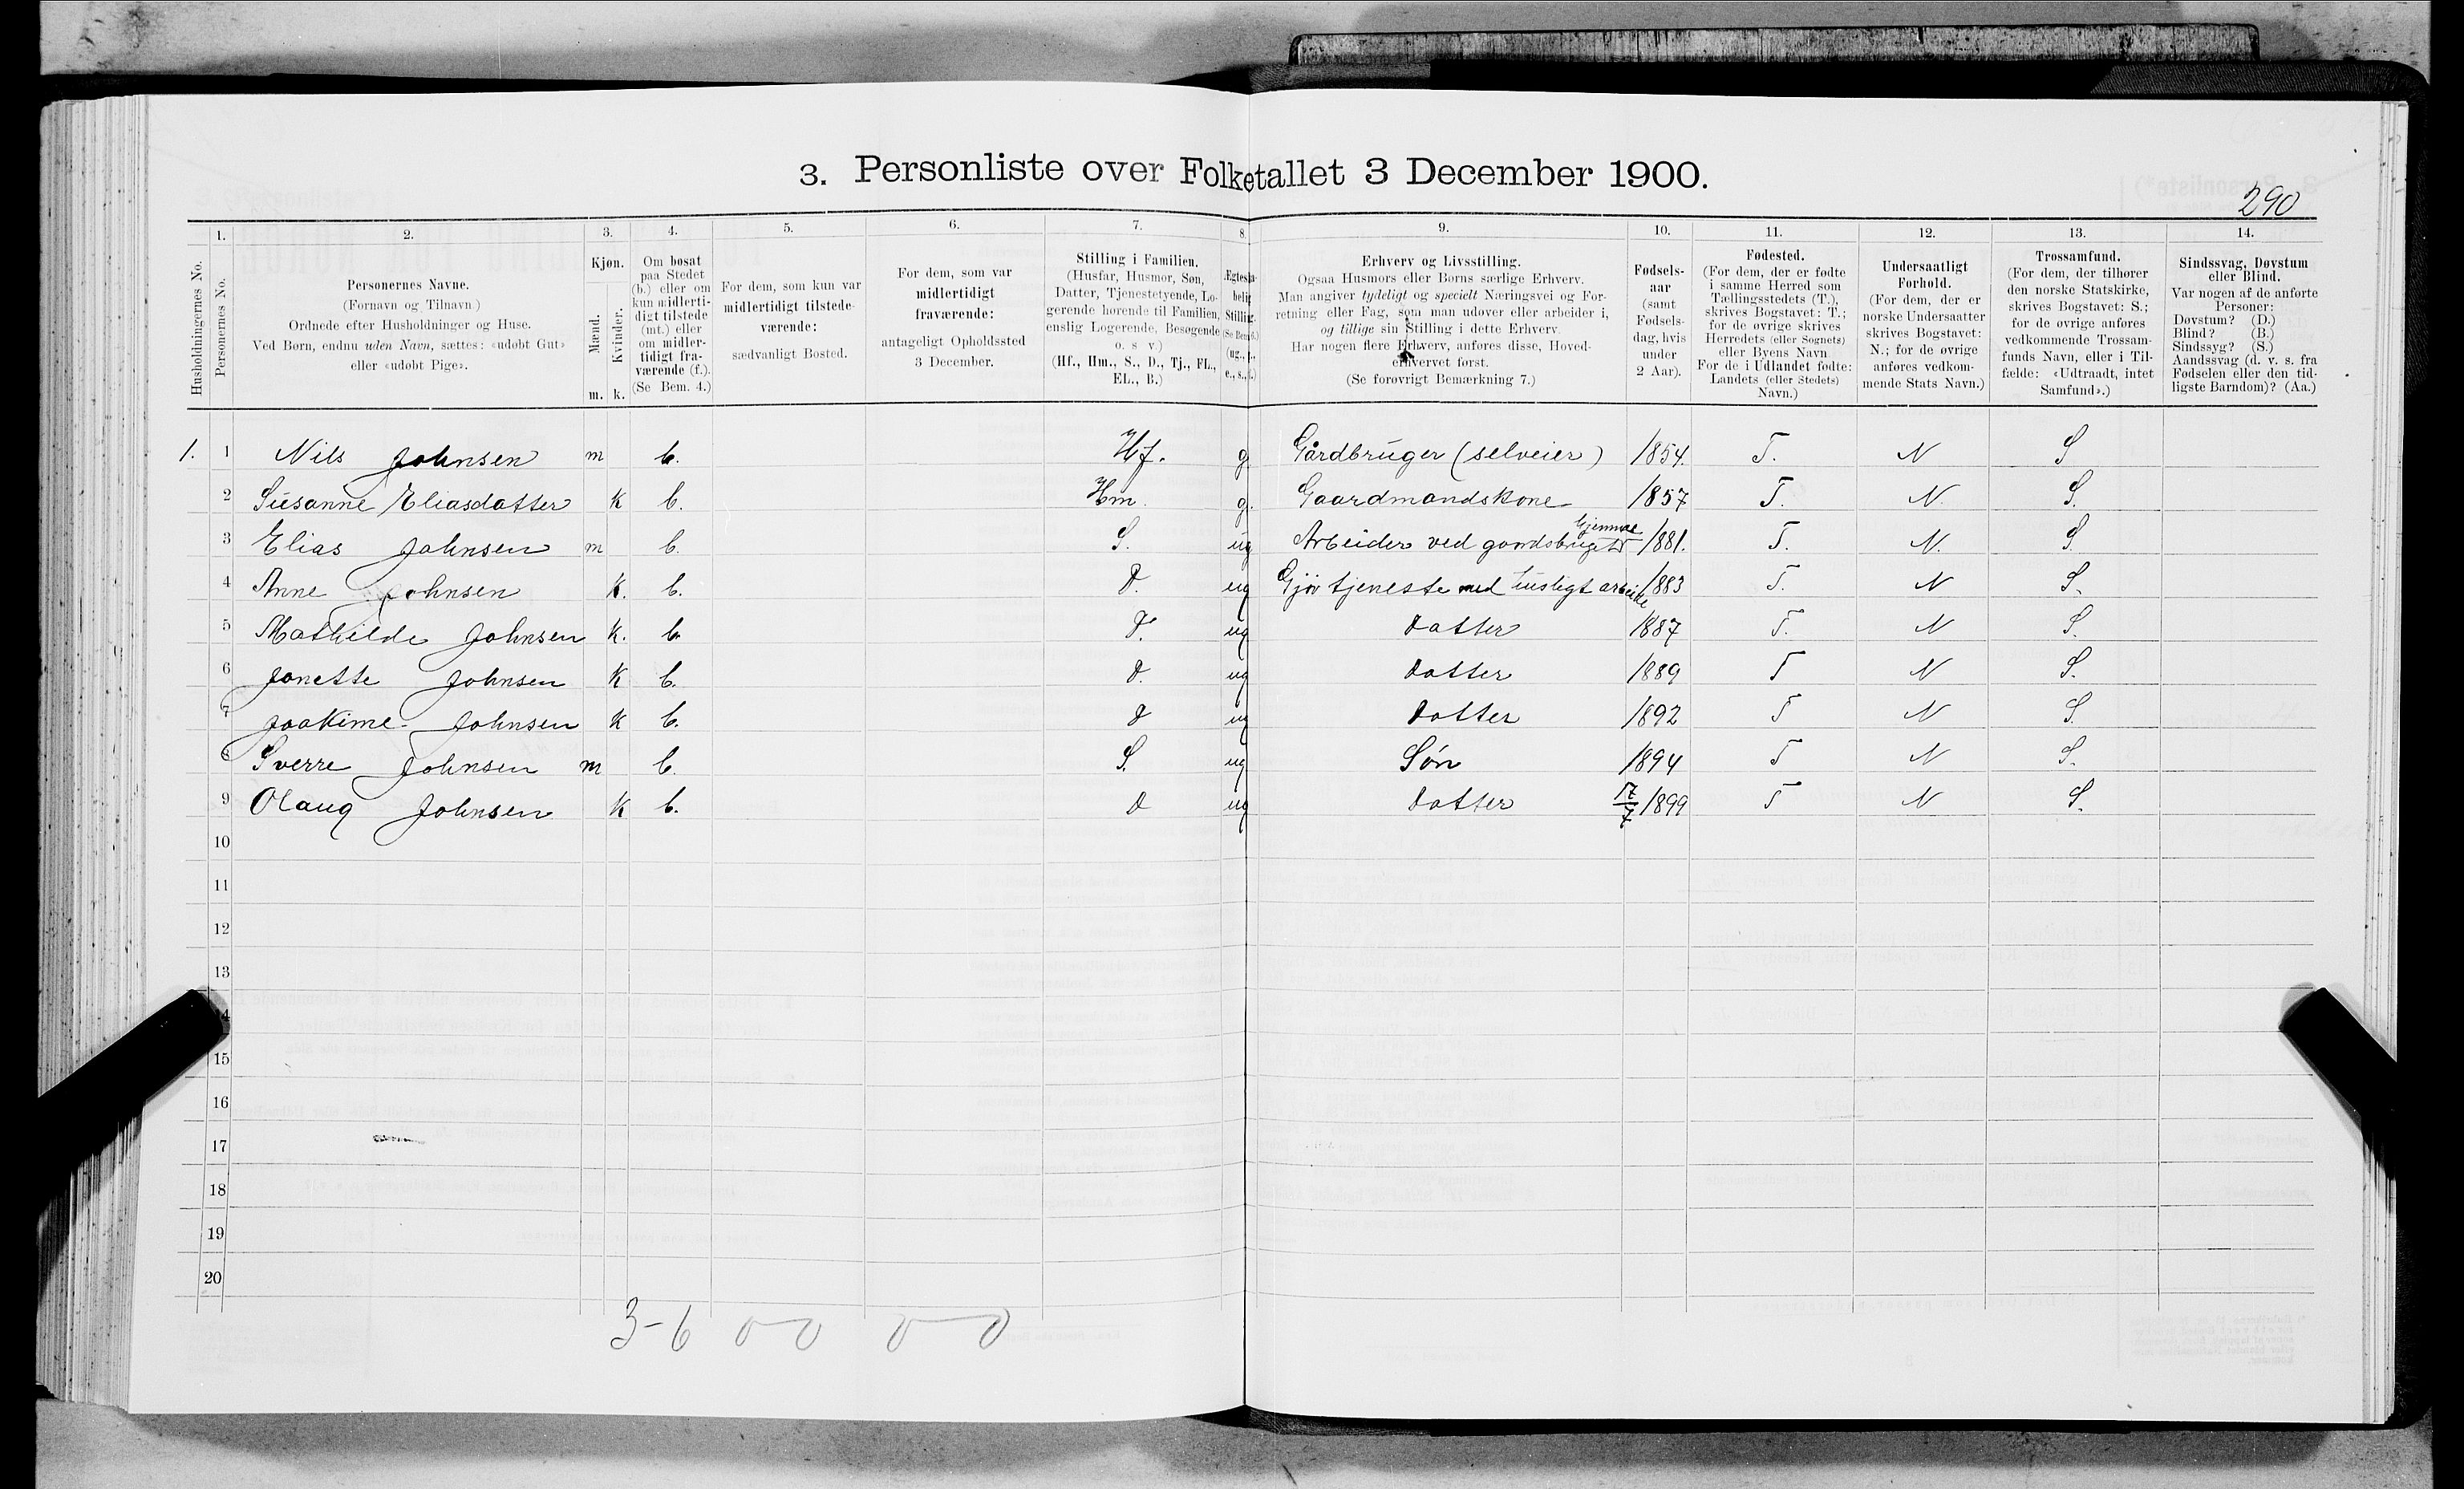 3. Personliste over Folketallet 3 December 1900.
290
1. 2. 3. 4. 5. 6. 7. 8. 9. 10. 11. 12. 13. 14.
Husholdningernes No.
Personernes No.
Personernes Navne.
(Fornavn og Tilnavn)
Ordnede efter Husholdninger og Huse.
Ved Børn, endnu uden Navn, sættes: «udøbt Gut»
eller «udøbt Pige».
Kjøn.
Mænd.
Kvinder.
m. k.
Om bosat
paa Stedet
(b.) eller om
kun midlerti-
digt tilstede
(mt.) eller
om midler-
tidigt fra-
værende (f.).
(Se Bem. 4.)
For dem, som kun var
midlertidigt tilstede-
værende:
sædvanligt Bosted.
For dem, som var
midlertidigt
fraværende:
antageligt Opholdssted
3 December.
Stilling i Familien.
(Husfar, Husmor, Søn,
Datter, Tjenestetyende, Lo-
gerende hørende til Familien,
enslig Logerende, Besøgende
o. s. v.)
(Hf., Hm., S., D., Tj., FL.,
EL., B.)
Ægteska-
belig
Stilling.
(Se Bem. 6.)
(ug., g.,
e., s., f.)
Erhverv og Livsstilling.
Ogsaa Husmors eller Børns særlige Erhverv.
Man angiver tydeligt og specielt Næringsvei og For-
retning eller Fag, som man udøver eller arbeider i,
og tillige sin Stilling i dette Erhverv.
Har nogen flere Erhverv, anføres disse, Hoved-
erhvervet først.
(Se forøvrigt Bemærkning 7.)
Fødsels-
aar
(samt
Fødsels-
dag, hvis
under
2 Aar).
Fødested.
(For dem, der er fødte
i samme Herred som
Tællingsstedets (T.),
skrives Bogstavet: T.;
for de øvrige skrives
Herredets (eller Sognets)
eller Byens Navn.
For de i Udlandet fødte:
Landets (eller Stedets)
Navn.)
Undersaatligt
Forhold.
(For dem, der er
norske Undersaatter
skrives Bogstavet:
N.; for de øvrige
anføres vedkom-
mende Stats Navn.)
Trossamfund.
(For dem, der tilhører
den norske Statskirke,
skrives Bogstavet: S.;
for de øvrige anføres
vedkommende Trossam-
funds Navn, eller i Til-
fælde: «Udtraadt, intet
Samfund».)
Sindssvag, Døvstum
eller Blind.
Var nogen af de anførte
Personer:
Døvstum? (D.)
Blind? (B.)
Sindssyg? (S.)
Aandssvag (d. v. s. fra
Fødselen eller den tid-
ligste Barndom)? (Aa.)
1. 1 Nils Johnsen m b. Hf. g. Gårdbruger (selveier) 1854. T. N S
2 Susanne Eliasdatter K b. Hm. g. Gaardmandskone 1857 T. N. S.
3 Elias Johnsen m b. S. ug Arbeider ved gaardsbruget hjemme 1881. T. N. S.
4 Anne Johnsen K. b. D. ug Gjør tjeneste med husligt arbeide 1883 T. N S.
5 Mathilde Johnsen K. b. D. ug Datter 1887 T. N S.
6 Janette Johnsen K b. D. ug Datter 1889 T N S.
7 Joakime Johnsen K b. D ug Datter 1892 T N S.
8 Sverre Johnsen m b. S. ug Søn 1894 T N S.
9 Olaug Johnsen K b. D ug Datter 17/7 1899 T N S.
10
11
12
13
4
15
16
17
18
19
20
3-6 0-0 0-0